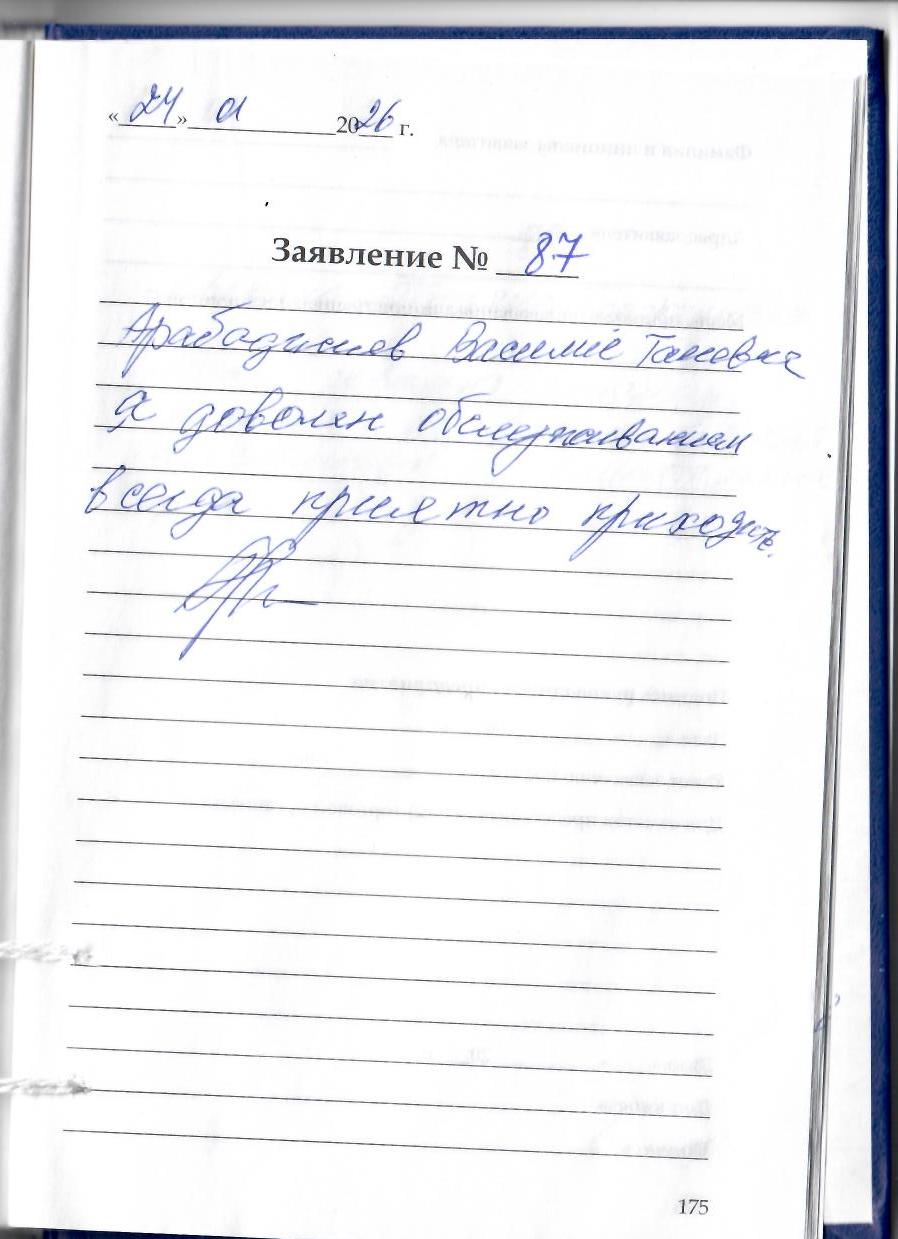 «24» 01 2026 г.
Заявление № 87
Арабаджиев Василий
Я доволен обслуживанием
всегда приятно приходить.
175